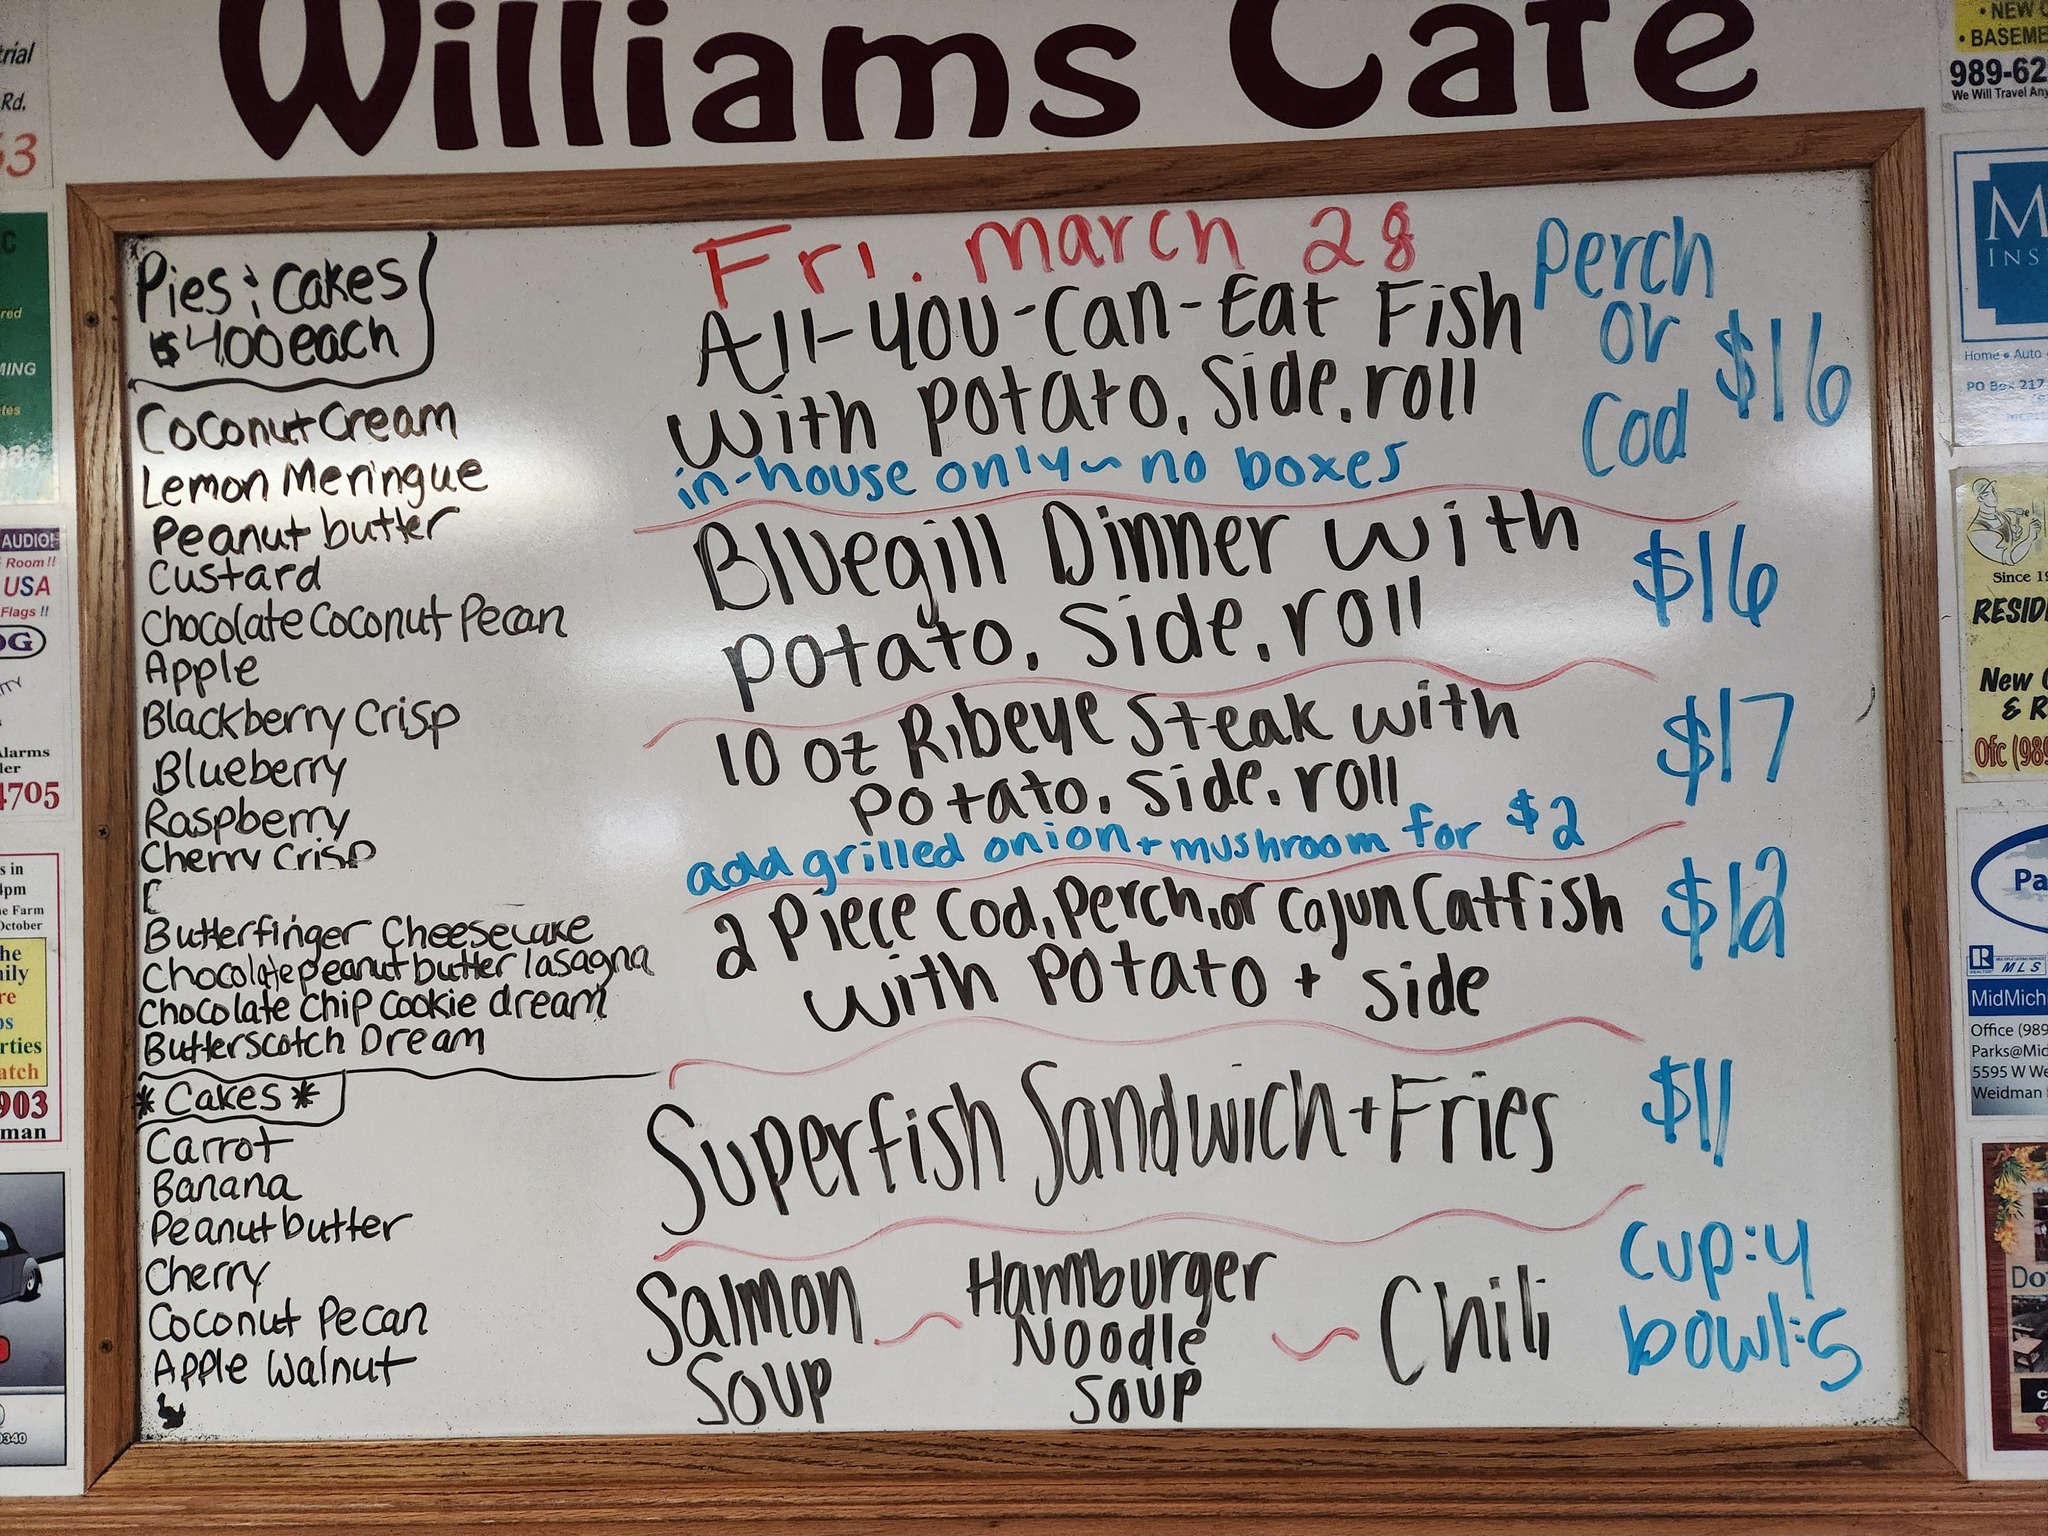 Williams Cafe
Pies & Cakes
$4.00 each
Coconut Cream
Lemon Meringue
Peanut butter
Custard
Chocolate Coconut Pecan
Apple
Blackberry Crisp
Blueberry
Raspberry
Cherry Crisp
Butterfinger Cheesecake
Chocolate peanut butter lasagna
Chocolate Chip Cookie dream
Butterscotch Dream
*Cakes*
Carrot
Banana
Peanut butter
Cherry
Coconut Pecan
Apple Walnut
Fri. March 28
All-You-Can-Eat Fish
with potato, side, roll
in-house only~ no boxes
Perch
or
Cod
$16
Bluegill Dinner with
potato, side, roll
$16
10 oz Ribeye Steak with
potato, side, roll
add grilled onion + mushroom for $2
$17
2 Piece Cod, Perch, or Cajun Catfish
with potato + side
$12
Superfish Sandwich + Fries
$11
Salmon
Soup
~
Hamburger
Noodle
Soup
~
Chili
cup:4
bowl:5
Rd.
AUDIO!
Room!!
USA
Flags!!
4705
903
• NEW
989-62
We Will Travel
INS
Home • Auto
PO Box 217
Since
RESID
New
& R
Ofc (989
Pa
MLS
MidMich
Office (989
Parks@Mid
5595 W
Weidman